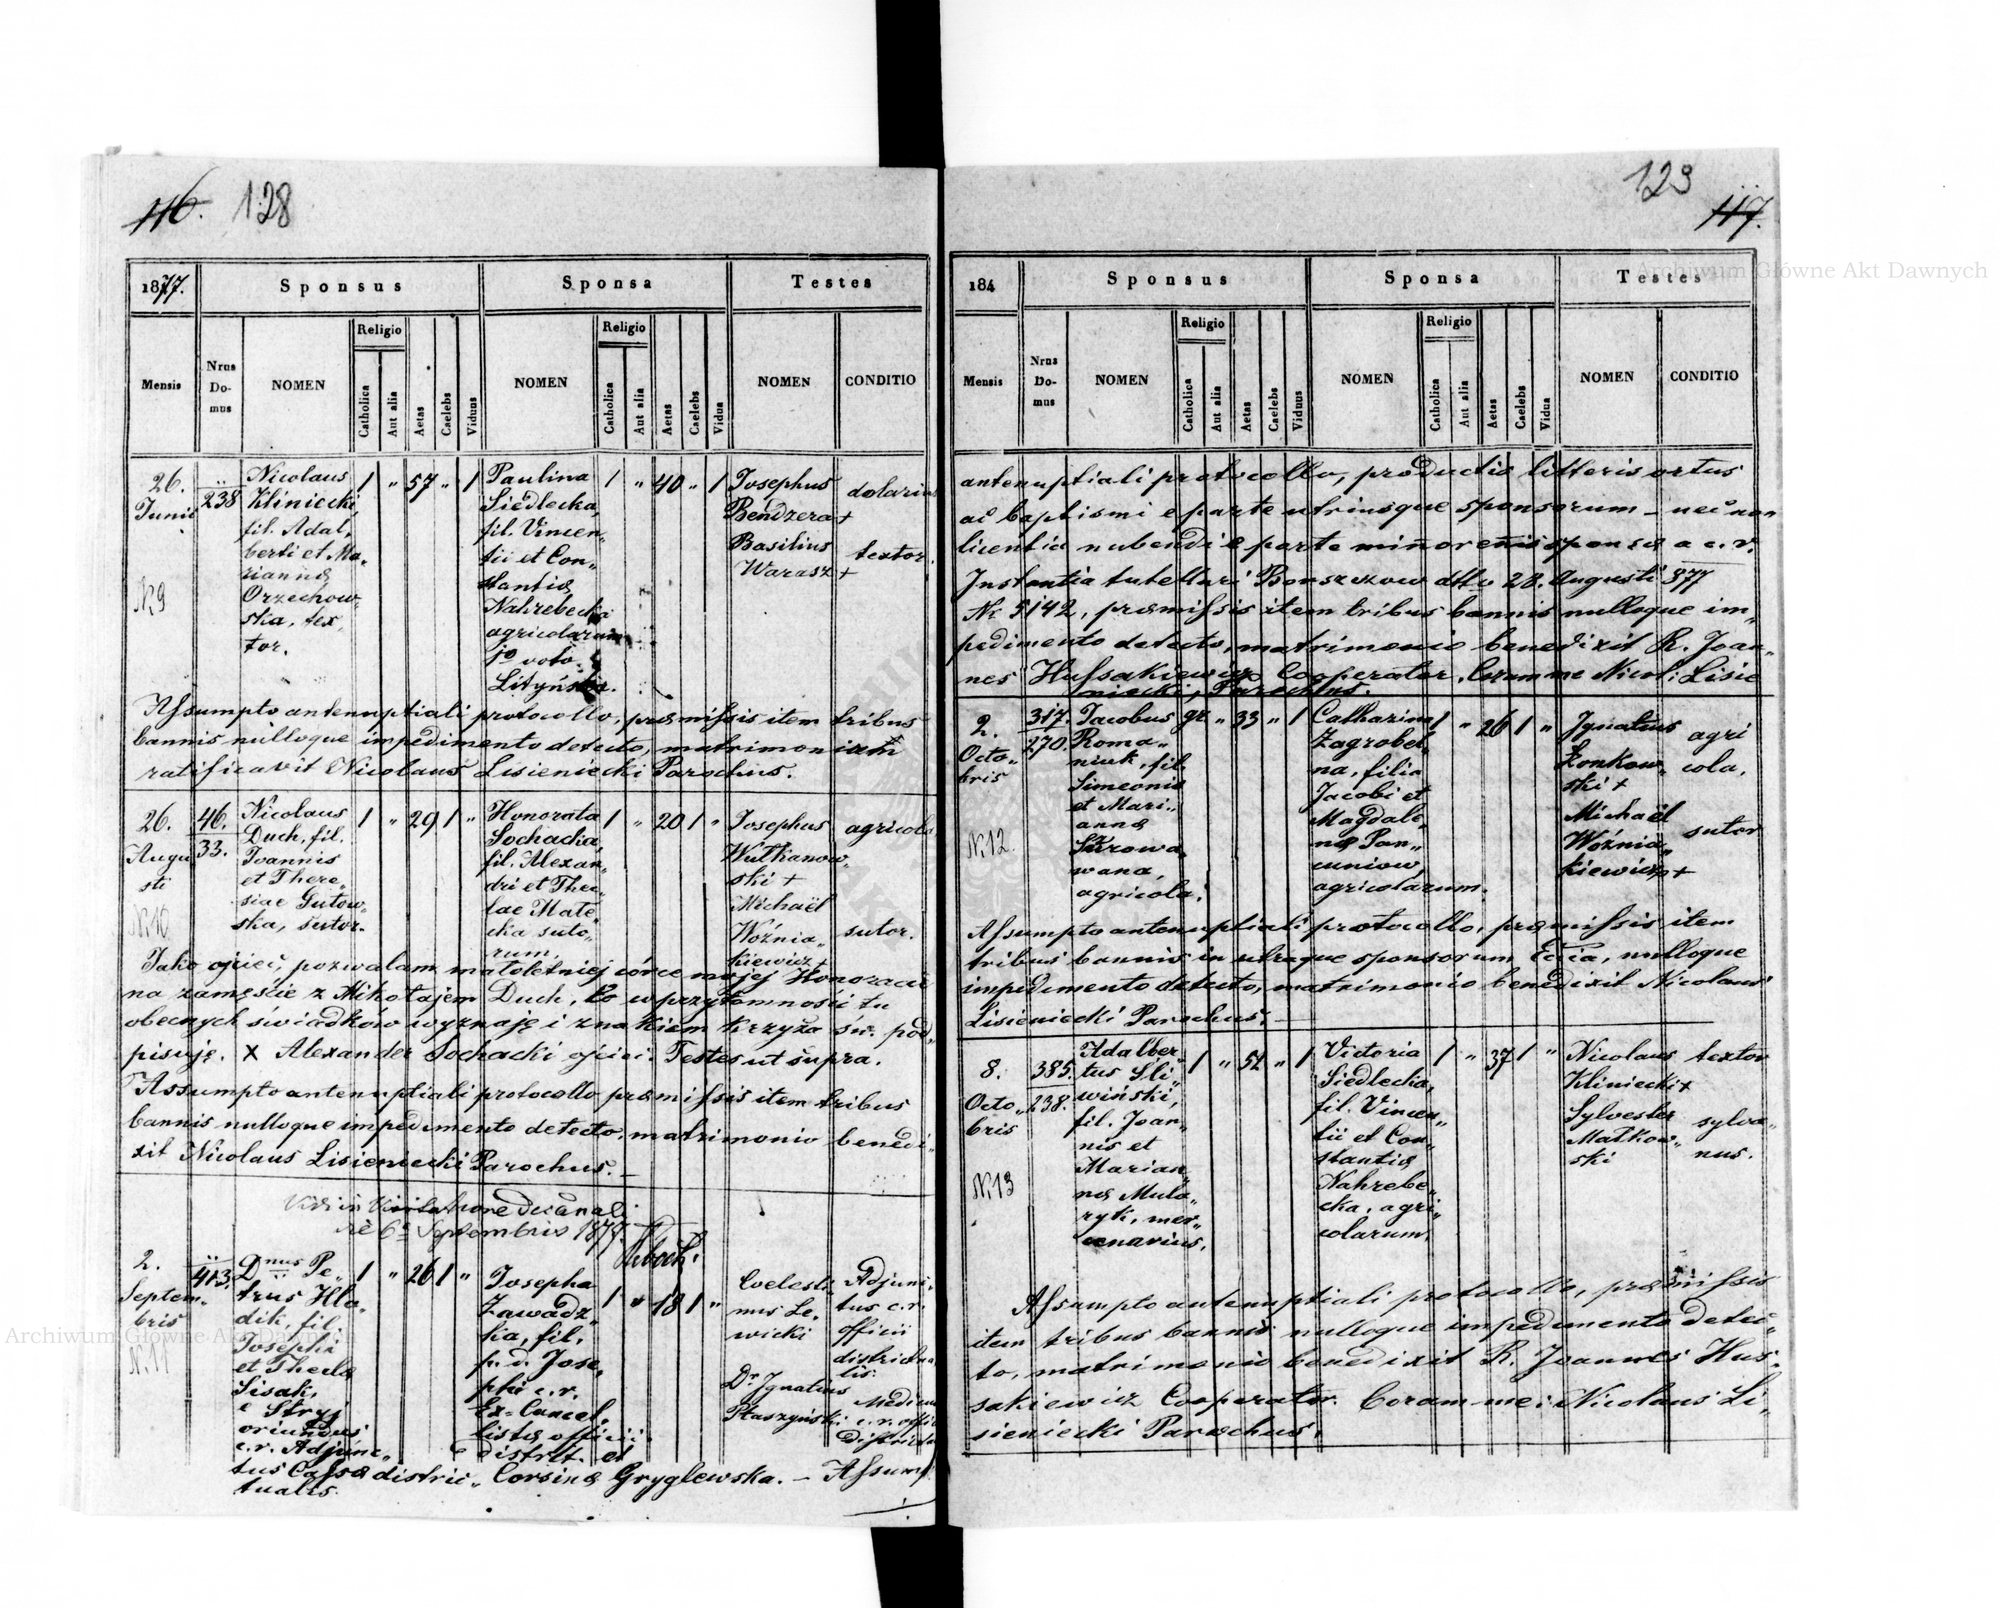 116. 128
1877. Sponsus Sponsa Testes
Mensis Nrus Domus NOMEN Religio Catholica Aut alia Aetas Caelebs Viduus NOMEN Religio Catholica Aut alia Aetas Caelebs Vidua NOMEN CONDITIO
26.
Junii
N. 9
238
Nicolaus
Kliniecki,
fil. Adal„
berti et Ma„
riannæ
Orzechow„
ska, tex„
tor.
1 „ 57 „ 1
Paulina
Siedlecka,
fil. Vincen„
tii et Con„
stantiæ
Nahrebecka
agricolarum
1º voto
Lityńska.
1 „ 40 „ 1
Josephus
Bendzera +
Basilius
Warasz +
dolarius
textor.
Assumpto antenuptiali protocollo, præmissis item tribus
bannis nulloque impedimento detecto, matrimonium
ratificavit Nicolaus Lisieniecki Parochus.
26.
Augu
sti
N. 10
46.
33.
Nicolaus
Duch, fil.
Joannis
et There„
siae Sutow„
ska, sutor.
1 „ 29 1 „
Honorata
Sochacka,
fil. Alexan„
dri et Thec„
lae Mate„
cka suto„
rum.
1 „ 20 1 „
Josephus
Wulkanow„
ski +
Michaël
Woźnia„
kiewicz +
agricola
sutor.
Jako ojciec, pozwalam małoletniej córce mojej Honoracie
na zamęście z Mikołajem Duch, to w przytomności tu
obecnych świadków wyznaję i znakiem krzyża św. pod„
pisuję. X Alexander Sochacki ojciec. Testes ut supra.
Assumpto antenuptiali protocollo præmissis item tribus
bannis nulloque impedimento detecto, matrimonio benedi„
xit Nicolaus Lisieniecki Parochus.
Vidi in Visitatione decanali
die 6ª Septembris 1877.
2.
Septem„
bris
N. 11
413.
Dnus Pe„
trus Hla„
dik, fil.
Josephi
et Theclæ
Sisak,
e Stryj
oriundus
c.r. Adjunc„
tus Cassæ distric„
tualis.
1 „ 26 1 „
Josepha
Zawadz„
ka, fil.
p. d. Jose„
phi c.r.
Ex-Cancel„
listæ officii
district. et
Corsinæ Gryglewska. – Assump
1 „ 18 1 „
Coelesti„
nus Le„
wicki
Dr Ignatius
Ptaszyński
Adjunc„
tus c.r.
officii
districtua
lis.
Medicus
c.r. offici
districtu
123
117.
184 Sponsus Sponsa Testes
Mensis Nrus Domus NOMEN Religio Catholica Aut alia Aetas Caelebs Viduus NOMEN Religio Catholica Aut alia Aetas Caelebs Vidua NOMEN CONDITIO
antenuptiali protocollo, productis litteris ortus
ac baptismi e parte utriusque sponsorum – nec non
licentia nubendi e parte minorennis sponsæ a c. r.
Instantia tutellari Borszczow dtto 28. Augusti 877
Nr 5142, præmissis item tribus bannis nulloque im„
pedimento detecto, matrimonio benedixit R. Joan„
nes Hussakiewicz Cooperator. Coram me Nicol: Lisie
niecki, Parochus.
2.
Octo„
bris
N. 12.
317.
270.
Jacobus
Roma„
niuk, fil.
Simeonis
et Mari„
annæ
Surowa„
wana,
agricola.
gr „ 33 „ 1
Catharina
Zagrobel„
na, filia
Jacobi et
Magdale„
næ Pan„
cuniow,
agricolarum.
1 „ 26 1 „
Ignatius
Żonkow„
ski +
Michaël
Woźnia„
kiewicz +
agri
cola.
sutor
Assumpto antenuptiali protocollo, præmissis item
tribus bannis in utraque sponsorum Eccia, nulloque
impedimento detecto, matrimonio benedixit Nicolaus
Lisieniecki Parochus.
8.
Octo„
bris
N. 13
385.
238.
Adalber„
tus Śli„
wiński,
fil. Joan„
nis et
Marian„
næ Mula„
ryk, mer„
cenarius.
1 „ 52 „ 1
Victoria
Siedlecka,
fil. Vincen„
tii et Con„
stantiæ
Nahrebe„
cka, agri„
colarum.
1 „ 37 1 „
Nicolaus
Kliniecki +
Sylvester
Matkow„
ski
textor
sylva„
nus.
Assumpto antenuptiali protocollo, præmissis
item tribus bannis nulloque impedimento detec„
to, matrimonio benedixit R. Joannes Hus„
sakiewicz Cooperator. Coram me: Nicolaus Li„
sieniecki Parochus.
Archiwum Główne Akt Dawnych
Archiwum Główne Akt Dawnych